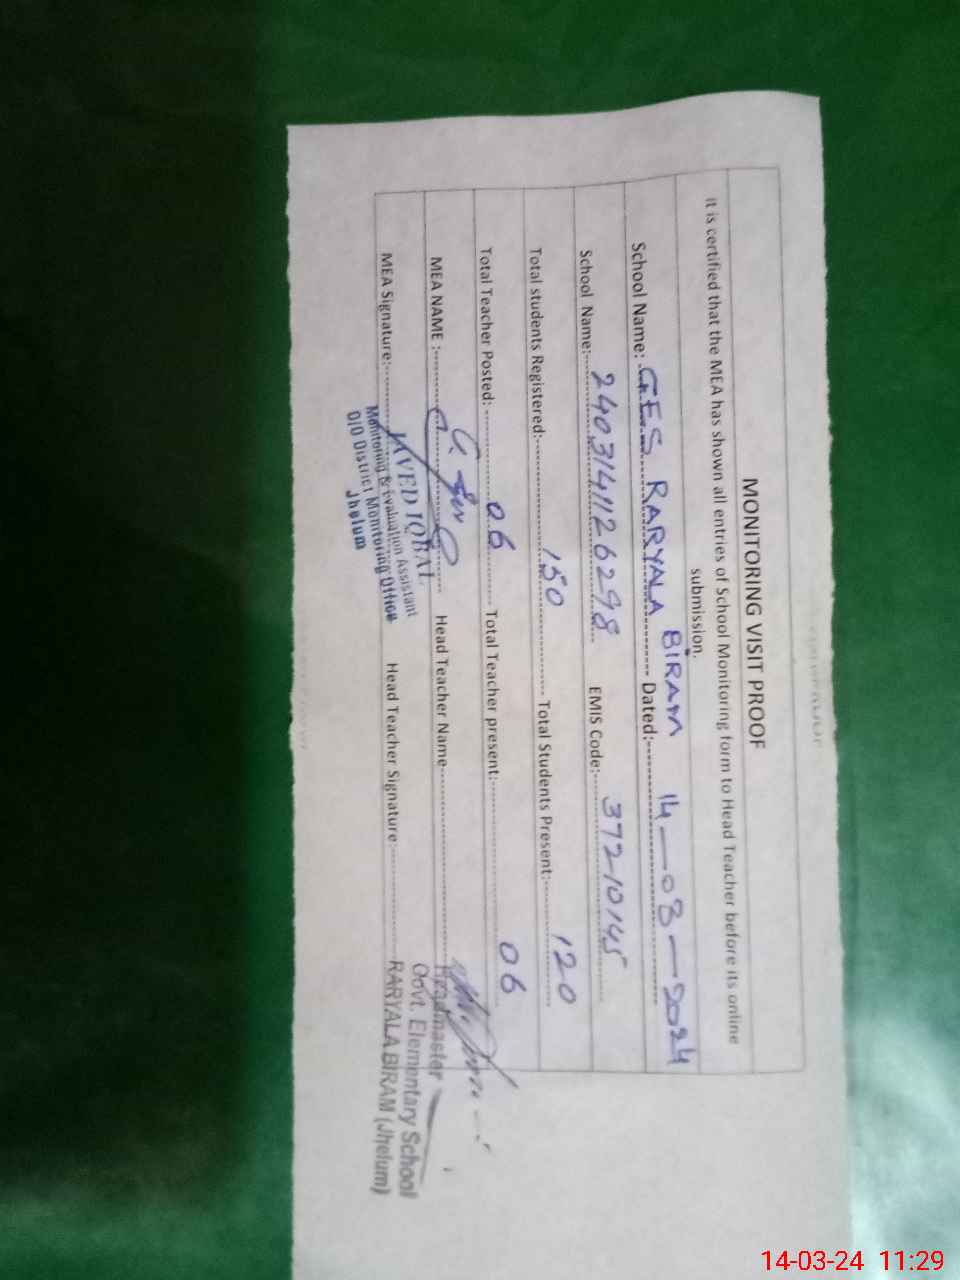 MONITORING VISIT PROOF
It is certified that the MEA has shown all entries of School Monitoring form to Head Teacher before its online
submission.
School Name: GES RARYALA BIRAM Dated: 14-03-2024
School Name: 2403141126298 EMIS Code: 37210145
Total students Registered: 150 Total Students Present: 120
Total Teacher Posted: 06 Total Teacher present: 06
MEA NAME : Head Teacher Name
MEA Signature: Head Teacher Signature:
JAVED IQBAL
Monitoring & Evaluation Assistant
O/O District Monitoring Office
Jhelum
Headmaster
Govt. Elementary School
RARYALA BIRAM (Jhelum)
14-03-24 11:29